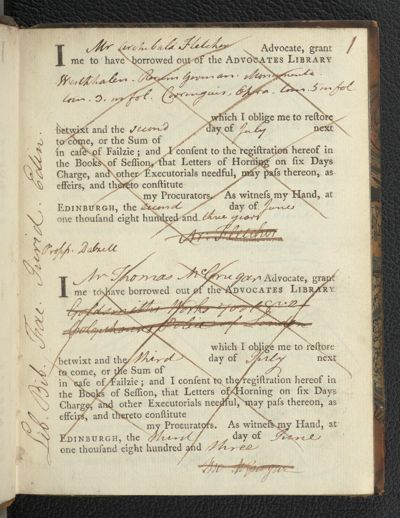 1
I Mr Archbald Fletcher Advocate, grant
me to have borrowed out of the ADVOCATES LIBRARY
Westphalen. Rerum German. Monumenta.
tom. 3. in fol. Opera. tom. 5 in fol
which I oblige me to reſtore
betwixt and the second day of July next
to come, or the Sum of
in caſe of Failzie; and I conſent to the regiſtration hereof in
the Books of Seſſion, that Letters of Horning on ſix Days
Charge, and other Executorials needful, may paſs thereon, as
effeirs, and thereto conſtitute
my Procurators. As witneſs my Hand, at
EDINBURGH, the second day of June
one thouſand eight hundred and three years
Ar. Fletcher
Profſr. Dalzell
I Mr Thomas McGrugar Advocate, grant
me to have borrowed out of the ADVOCATES LIBRARY
Goldsmiths Works
of London
which I oblige me to reſtore
betwixt and the third day of July next
to come, or the Sum of
in caſe of Failzie; and I conſent to the regiſtration hereof in
the Books of Seſſion, that Letters of Horning on ſix Days
Charge, and other Executorials needful, may paſs thereon, as
effeirs, and thereto conſtitute
my Procurators. As witneſs my Hand, at
EDINBURGH, the third day of June
one thouſand eight hundred and three
Tho McGrugar
Lib. Bib. Fac. Jurid. Edin.